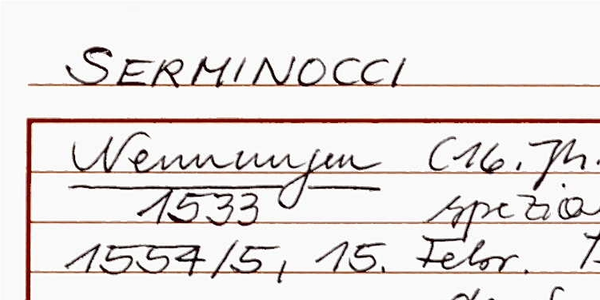 SERMINOCCI
Nennungen (16. Jh.
1533 spezia
1554/5, 15. Febr.